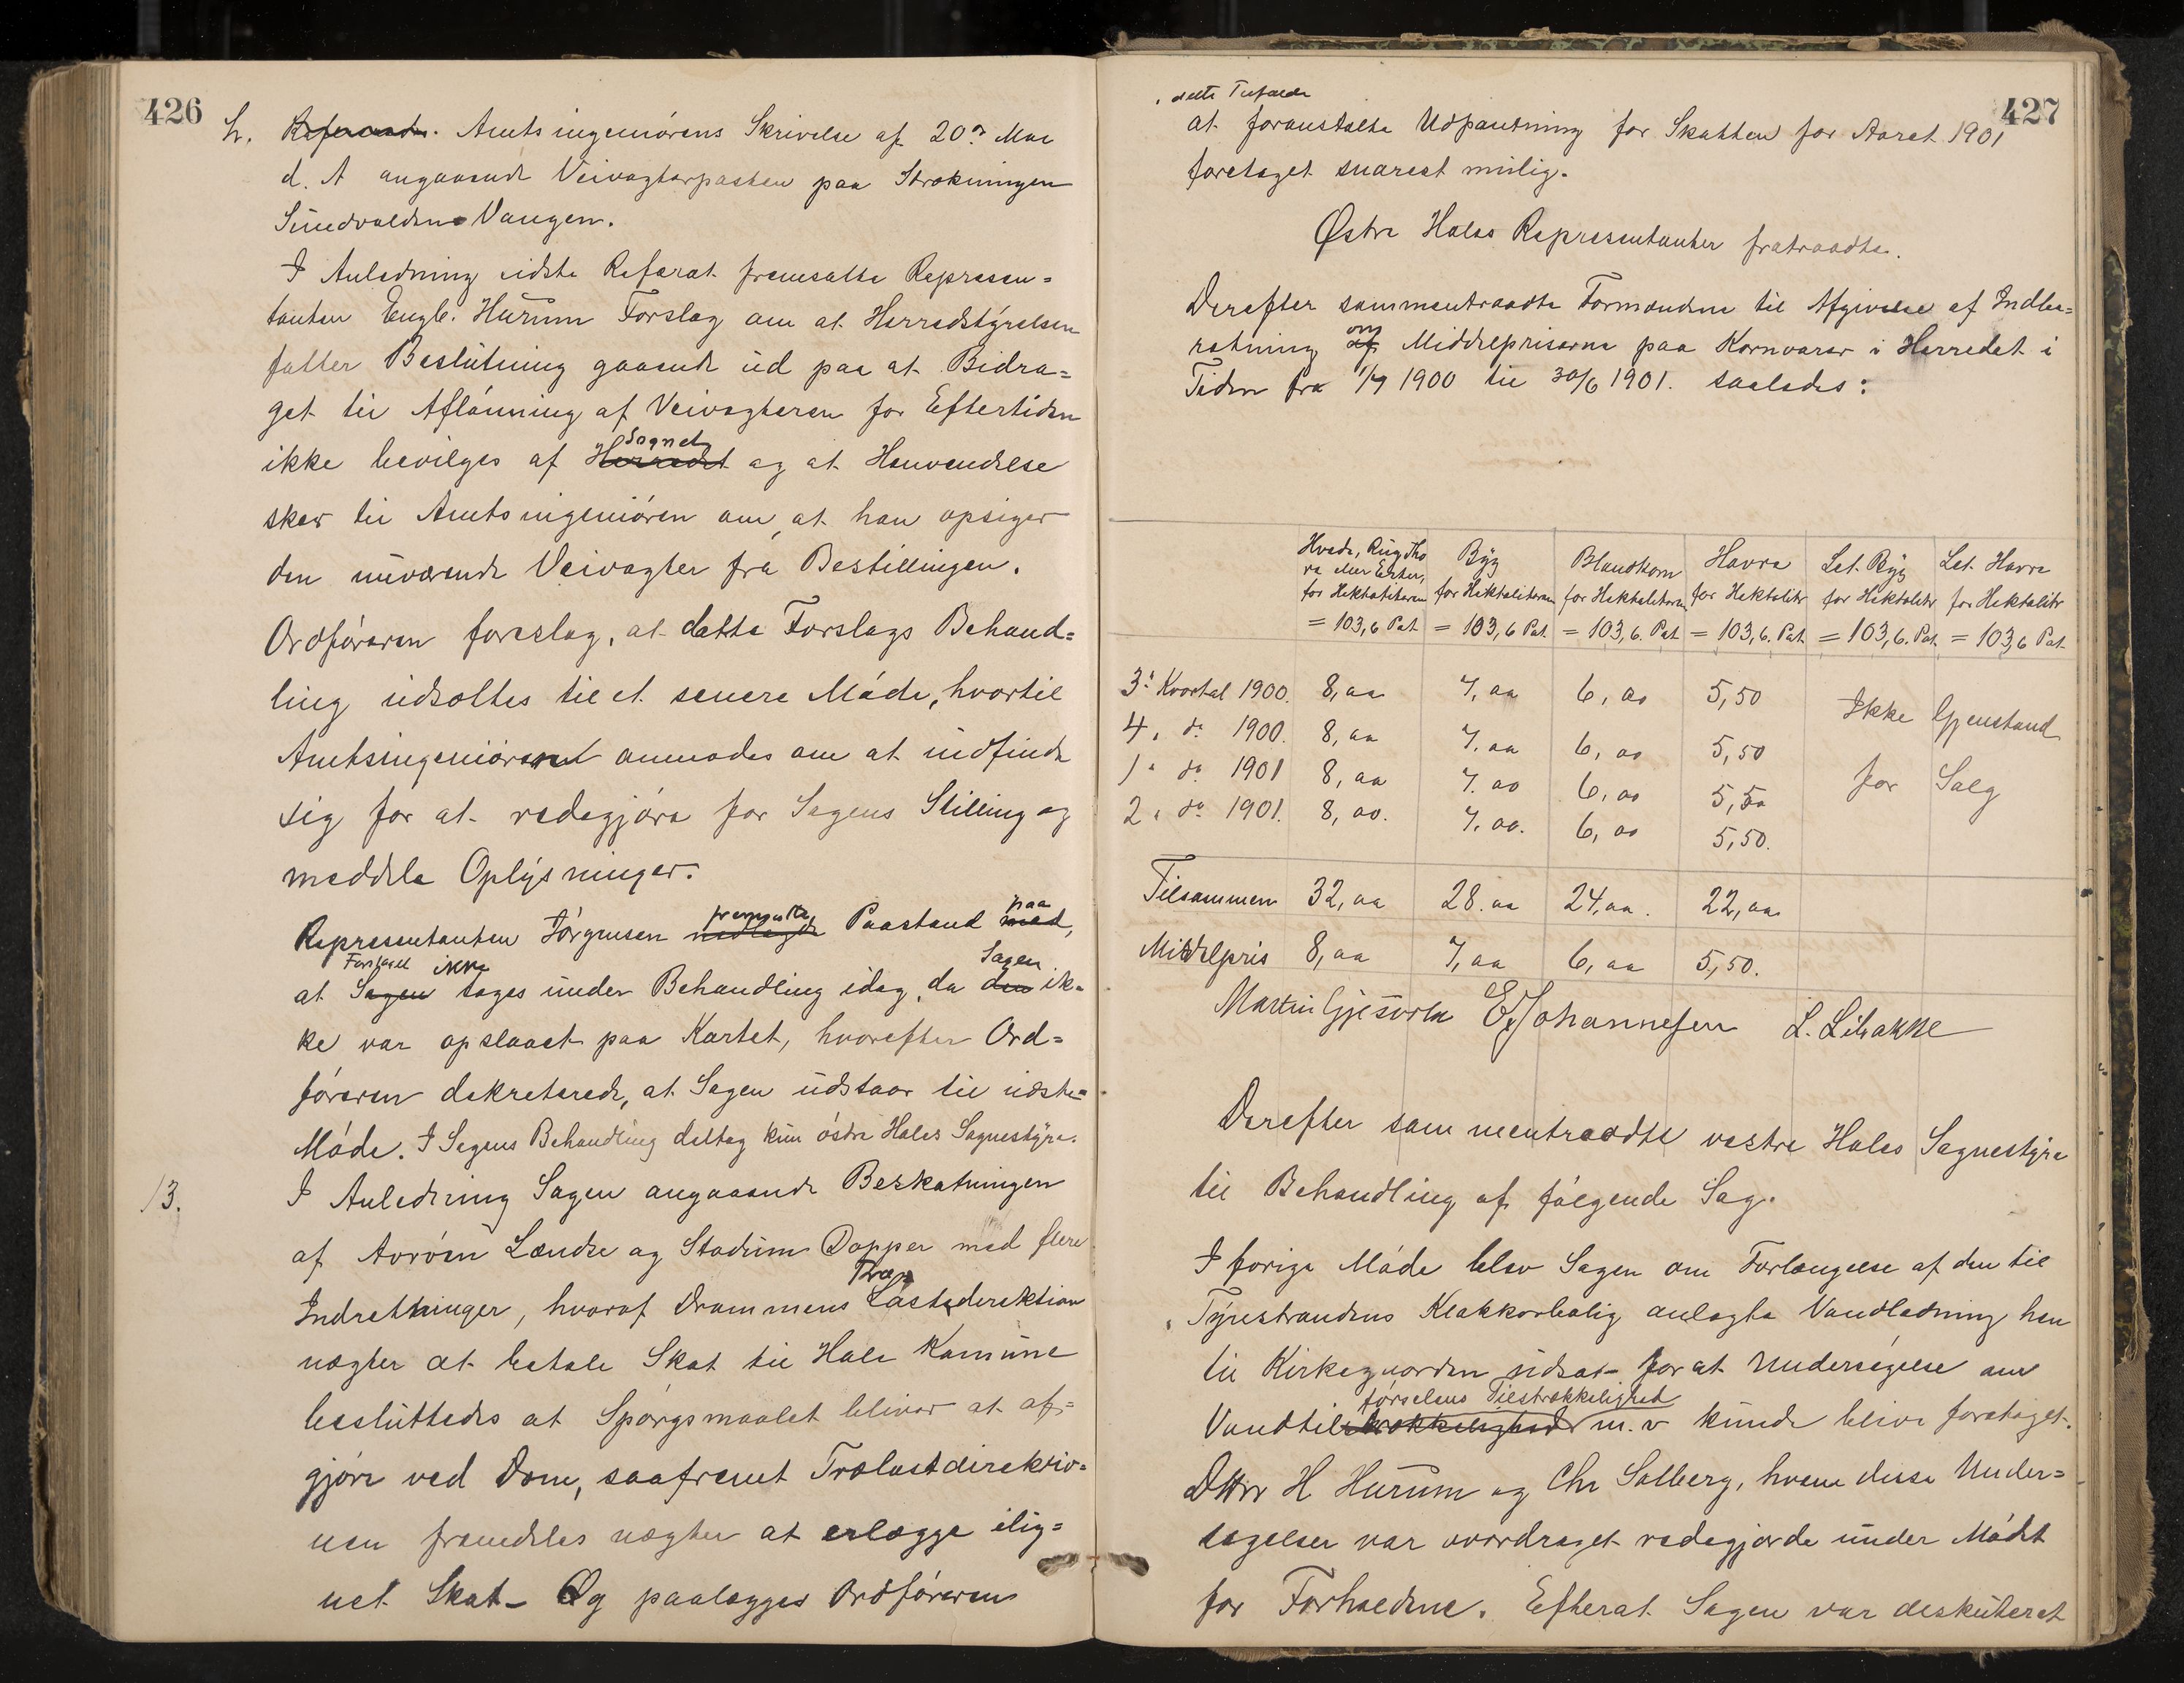 426
h. Referat. Amtsingeniörens Skrivelse af 20de Mai
d. A angaaende Veivogterposten paa Strækningen
Sundvolden-Vangen.
I Anledning sidste Referat fremsatte Represen=
tanten Engb. Hurum Forslag om at Herredstyrelsen
fatter Beslutning gaaende ud paa at Bidra=
get til Aflönning af Veivogteren for Eftertiden
Sognet
ikke bevilges af Herredet og at Henvendelse
sker til Amtsingeniören om at han opsiger
den nuværende Veivogter fra Bestillingen.
Ordföreren foreslog, at dette Forslags Behand=
ling udsættes til et senere Möde, hvortil
Amtsingeniören anmodes om at indfinde
sig for at redegjöre for Sagens Stilling og
meddele Oplysninger.
fremsatte paa
Representanten Jörgensen nedlagde Paastand med,
Forslaget ikke Sagen
at Sagen toges under Behandling idag, da den ik-
ke var opslaaet paa Kartet, hvorefter Ord=
föreren dekreterede, at Sagen udstaar til næste
Möde. I Sagens Behandling deltog kun östre Holes Sognestyre.
13. I Anledning Sagen angaaende Beskatningen
af Avröen Lændse og Stadum Dopper med flere
Træ
Indretninger, hvoraf Drammens Lastedirektion
nægter at betale Skat til Hole Komune
besluttedes at Spörgsmaalet bliver at af=
gjöre ved Dom, saafremt Trælastdirektio=
nen fremdeles nægter at erlægge ilig=
net Skat- Og paalægges Ordföreren
427
i dette Tilfælde
at foranstalte Udpantning for Skatten for Aaret 1901
foretaget snarest mulig.
Østre Holes Representanter fratraadte.
Derefter sammentraadte Formændene til Afgivelse af Indbe=
om
retning af Middelpriserne paa Kornvarer i Herredet i
Tiden fra 1/7 1900 til 30/6 1901. saaledes:
Hvede, Rug
eller Erter, Byg Blandkorn Havre Let. Byg Let. Havre
for Hektoliteren for Hektoliteren for Hektoliteren for Hektolitr for Hektolitr for Hektolitr
= 103,6 Pot = 103,6 Pot. = 103,6. Pot = 103,6. Pot = 103,6. Pot. = 103,6 Pot
3' Kvartal 1900. 8,oo 7,oo 6,oo 5,50 Ikke Gjenstand
4. do 1900. 8,oo 7.oo 6,oo 5,50
1. do 1901 8,oo 7.oo 6,oo 5,50 for Salg
2. do 1901. 8,oo. 7.oo. 6,oo 5,50.
Tilsammen 32,oo 28.oo 24,oo. 22,oo
Middelpris 8,oo 7,oo 6,oo 5,50.
Martin Gjesvold E Johannesen L. Libakke
Derefter sammentraadte vestre Holes Sognestyre
til Behandling af fölgende Sag.
I forige Möde blev Sagen om Forlængelse af den til
Tyrestrandens Klokkerbolig anlagte Vandledning hen
til Kirkegaarden udsat for at Undersögelse om
förselens Tilstrækkelighed
Vandtilstrækkelighed m. v kunde blive foretaget.
DHrr H Hurum og Chr Solberg, hvem disse Under=
sögelser var overdraget redegjorde under Mödet
for Forholdene. Efterat Sagen var deskuteret